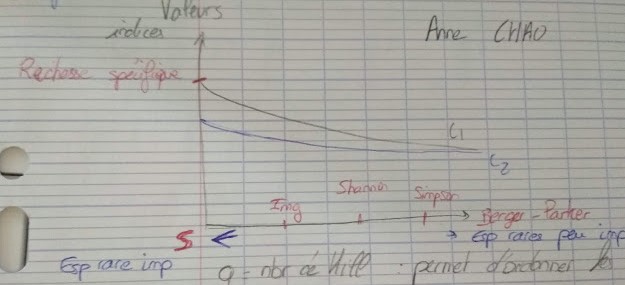 Valeurs
indices
Anne CHAO
Richesse spécifique
C1
C2
Img
Shannon
Simpson
Berger-Parker
S
Esp rares peu imp
Esp rare imp
q = nbr de Hill : permet d'ordonner